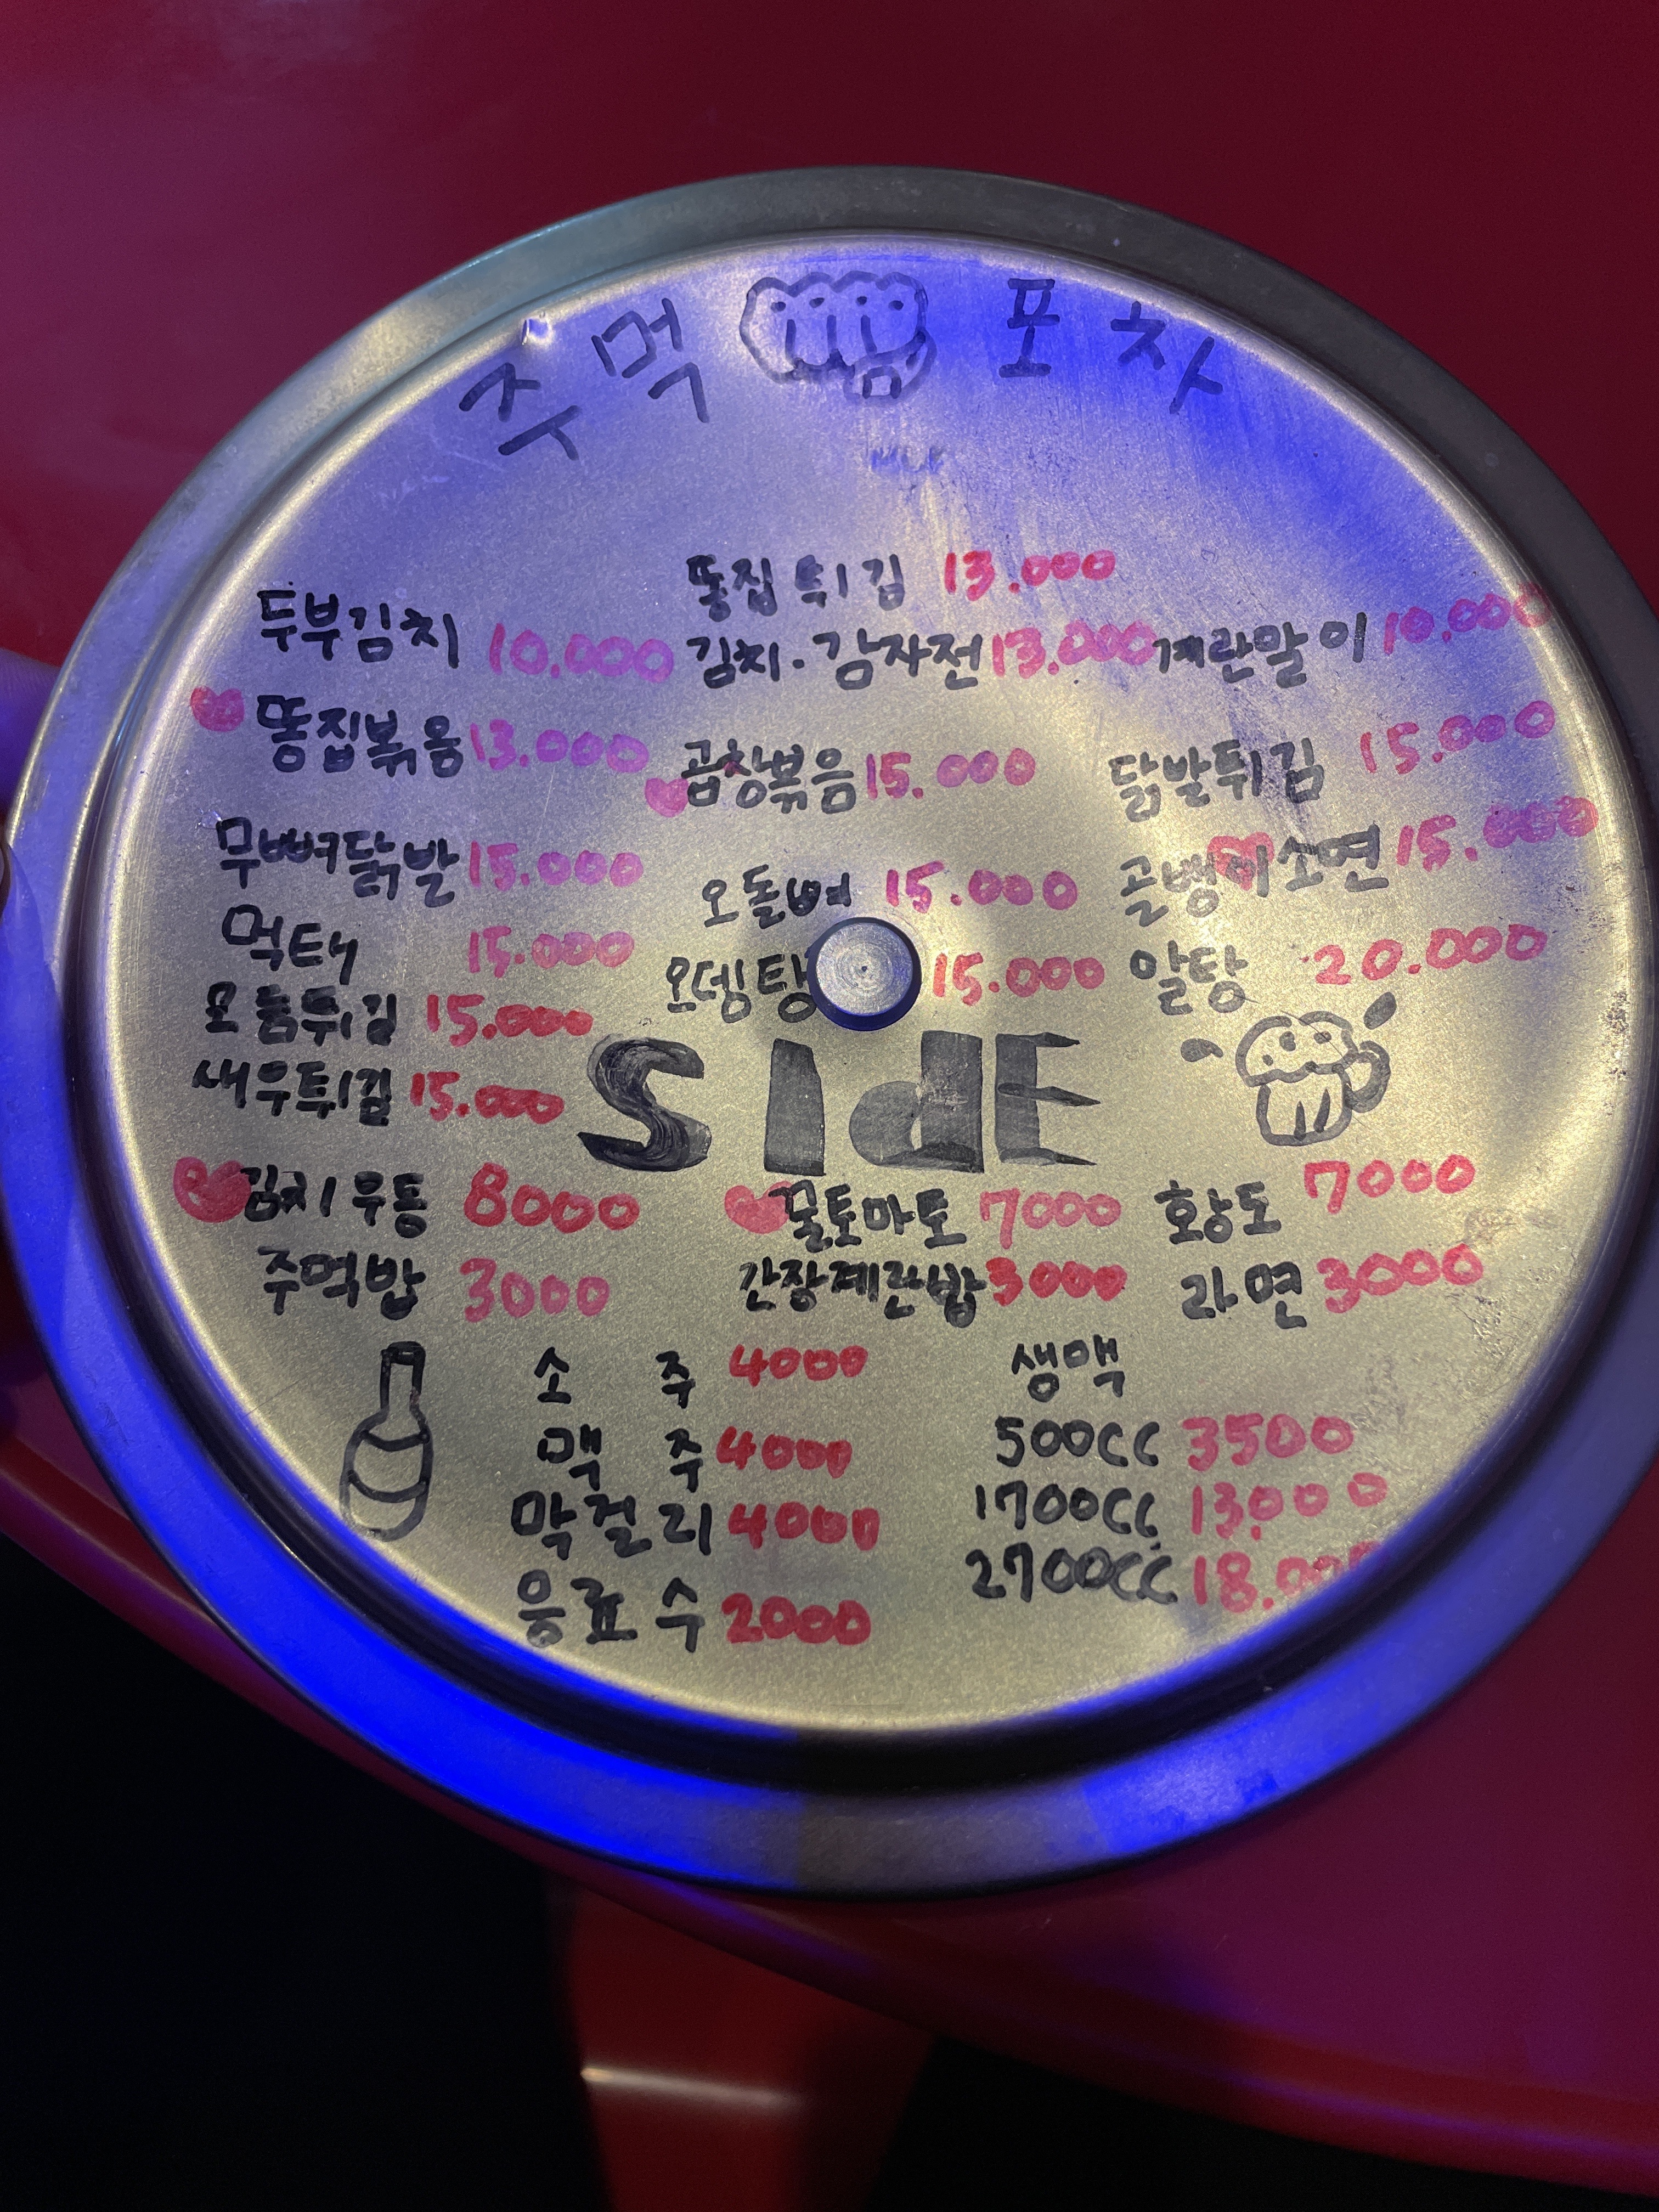 주먹 포차
똥집튀김 13.000
두부김치 10.000 김치.감자전 13.000 계란말이 10.000
똥집볶음 13.000 곱창볶음 15.000 닭발튀김 15.000
무뼈닭발 15.000 오돌뼈 15.000 골뱅이소면 15.000
먹태 15.000 오뎅탕 15.000 알탕 20.000
모듬튀김 15.000
새우튀김 15.000
SIdE
김치우동 8000 꿀토마토 7000 황도 7000
주먹밥 3000 간장계란밥 3000 라면 3000
소주 4000 생맥
맥주 4000 500cc 3500
막걸리 4000 1700cc 13.000
음료수 2000 2700cc 18.000